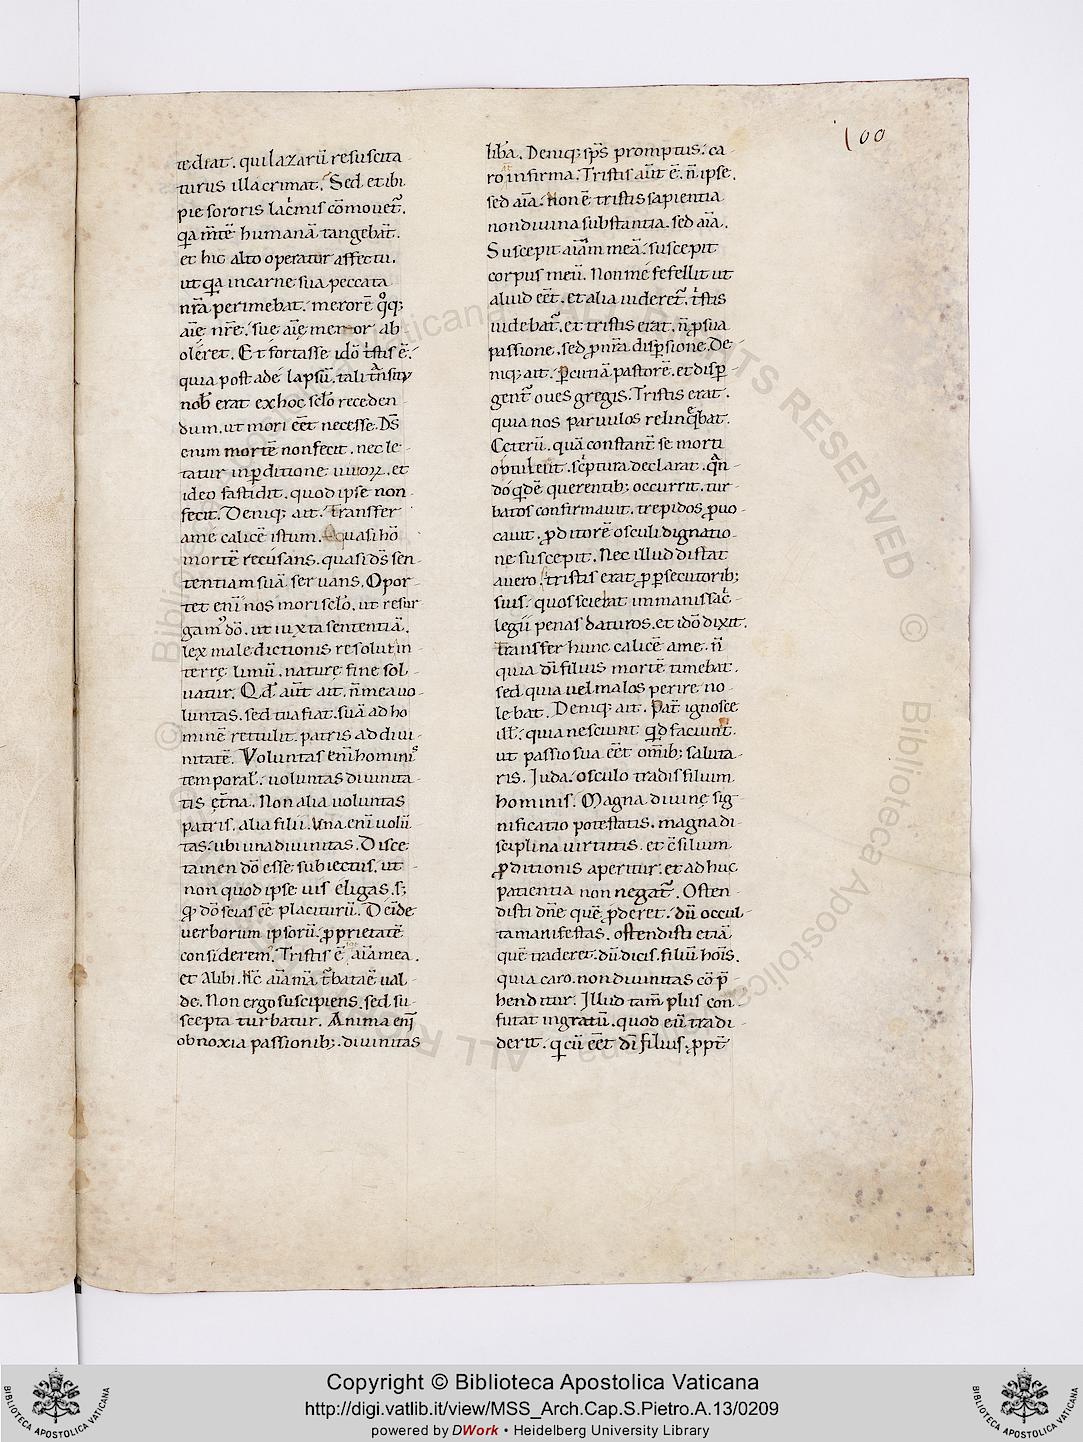 100
tediat. qui lazarū resuscita-
turus illacrimat. Sed et ibi
pie sororis lac̄mis cōmouet᷑.
q̄a m̄tē humanā tangebat̄.
et hic alto operatur affectu.
ut q̄a in carne sua peccata
nr̄a perimebat. merorē q̊q;
aīę nr̄ę. suę aīę meror ab
oleret. Et fortasse idō t̄stis ē.
quia post adę lapsū. tali t̄nsitu
nob̄ erat ex hoc sc̄lo receden
dum. ut mori eēt necesse. D̄s
enim mortē non fecit. nec lę-
tatur in ꝑditione uiuoꝝ. et
ideo fastidit. quod ipse non
fecit. Deniq; ait. Transfer
a me calicē istum. Quasi hō
mortē recusans. quasi d̄s sen
tentiam suā seruans. Opor-
tet enī nos mori sc̄lo. ut resur
gam᷒ dō. ut iuxta sententiā.
lex maledictionis resolut in
terrę limū. naturę fine sol-
uatur. Qd̄ aūt ait. n̄ mea uo-
luntas. sed tua fiat. suā ad ho
minē rettulit. patris ad diui-
nitatē. Voluntas enī homini᷒
temporal̄. uoluntas diuinita-
tis et̄na. Non alia uoluntas
patris. alia filii. Una enī uolū
tas. ubi una diuinitas. Disce
tamen dō esse subiectus. ut
non quod ipse uis eligas. s;
q̄ dō scias eē placiturū. Deīde
uerborum ipsorū. ꝓprietatē
considerem᷒. Tristis ē aīa mea.
et alibi. N̄c aīa m̄a t̄bata ē ual
de. Non ergo suscipiens. sed su-
scepta turbatur. Anima enī
obnoxia passionib;. diuinitas
lib̄a. Deniq; sp̄s promptus. ca-
ro infirma. Tristis aūt ē. n̄ ipse.
sed aīa. Non ē tristis sapientia
non diuina substantia. sed aīa.
Suscepit aīam meā. suscepit
corpus meū. Non me fefellit ut
aliud eēt. et alia uideret᷑. t̄stis
uidebat᷑. et tristis erat. n̄ ꝓ sua
passione. sed ꝓ nr̄a disꝑsione. De
niq; ait. ꝑcutiā pastorē. et disꝑ-
gent᷑ oues gregis. Tristis erat.
quia nos paruulos relinq̄bat.
Ceterū. quā constant̄ se morti
obtulerit. sc̄ptura declarat. q̄n-
do q̄dē querentib; occurrit. tur-
batos confirmauit. trepidos ꝓuo-
cauit. ꝓditorē osculi dignatio-
ne suscepit. Nec illud distat
a uero. si tristis erat ꝓ ꝑsecutorib;
suis. quos sciebat immanis sac̄-
legii penas daturos. et idō dixit.
Transfer hunc calicē a me. n̄
quia dī filius mortē timebat.
sed quia uel malos perire no-
lebat. Deniq; ait. Pat̄ ignosce
ill̄. quia nesciunt qd̄ faciunt.
ut passio sua eēt om̄ib; saluta-
ris. Iuda. osculo tradis filium
hominis. Magna diuinę sig-
nificatio potestatis. magna di-
sciplina uirtutis. et c̄silium
ꝓditionis aperitur. et adhuc
patientia non negat᷑. Osten-
disti dn̄e quē ꝓderet. dū occul-
ta manifestas. ostendisti etiā
quē traderet. dū dicis. filiū hoīs.
quia caro. non diuinitas cō p̄-
henditur. Illud tam̄ plus con-
futat ingratū. quod eū tradi-
derit. q̄ cū eēt dī filius. ꝓpt̄
Copyright © Biblioteca Apostolica Vaticana
http://digi.vatlib.it/view/MSS_Arch.Cap.S.Pietro.A.13/0209
powered by DWork • Heidelberg University Library